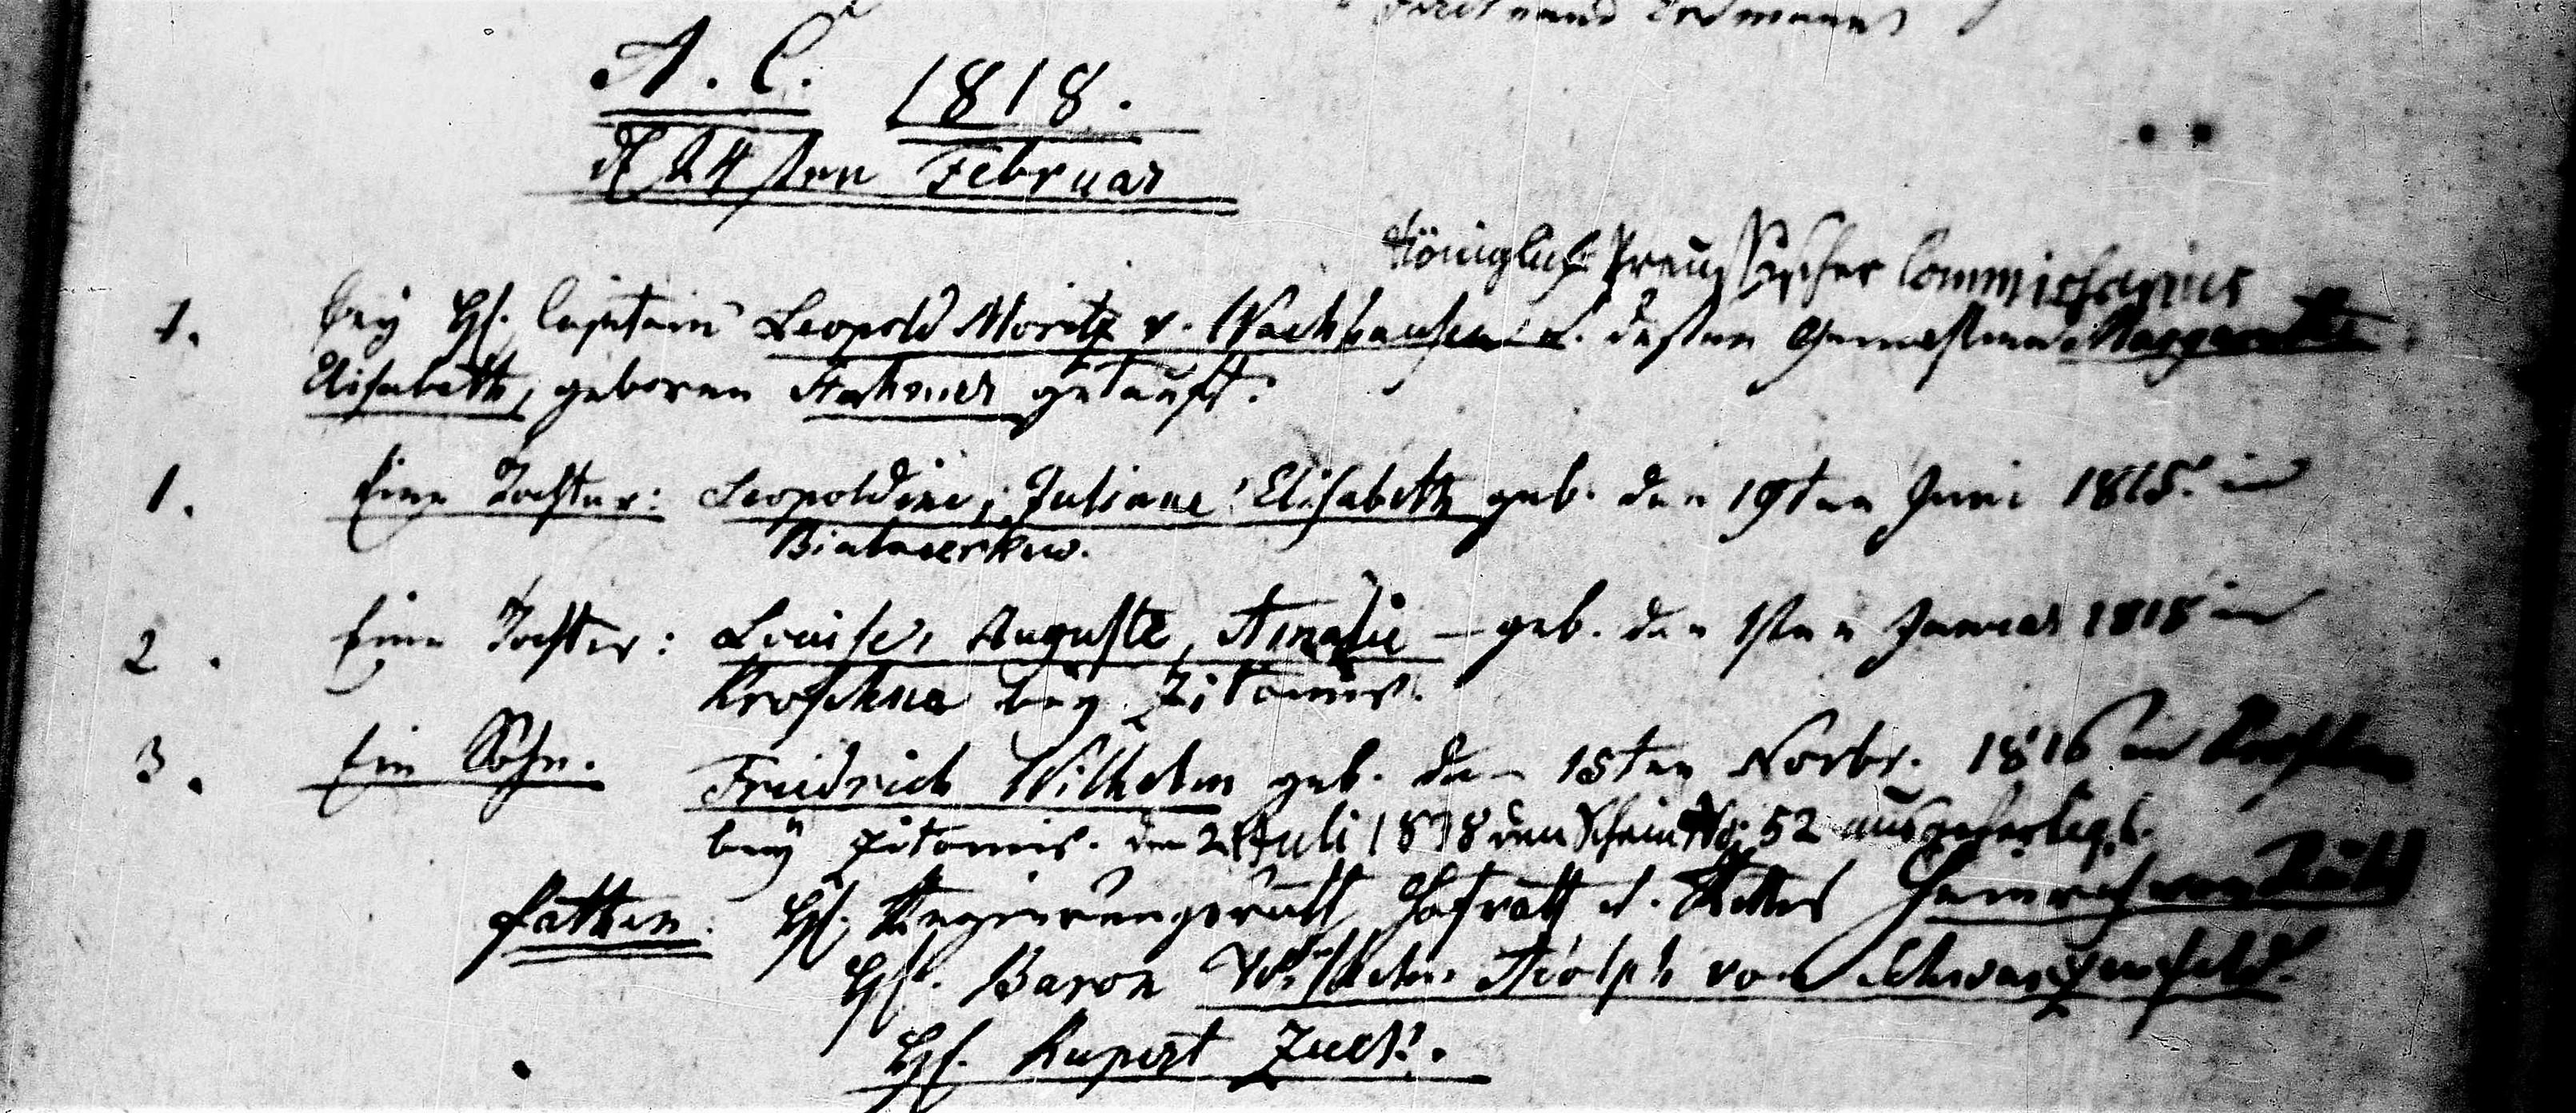 Ferdinand Erdmann
A. C. 1818.
d 24sten Februar
Königlich Preußischer Commissarius
1. bey H. Capitain Leopold Moritz v. Wackhausen u. dessen Gemahlinn Margaretha
Elisabeth, geboren getauft.
1. Eine Tochter: Leopoldine, Juliane, Elisabeth geb. den 19ten Juni 1815. in
2. Eine Tochter: Louise, Auguste, Amalie – geb. den 1sten Januar 1818 in
Kroschna bey Zitomir.
3. Ein Sohn. Friedrich Wilhelm geb. den 15ten Novbr. 1816 in
bey Zitomir. den Juli 1838 den Schein No: 52 ausgefertigt.
Pathen: H. Regierungsrath, Hofrath u. Ritter Heinrich von
H. Baron Wilhelm Adolph von Schwarzenfeld.
H. Rupert